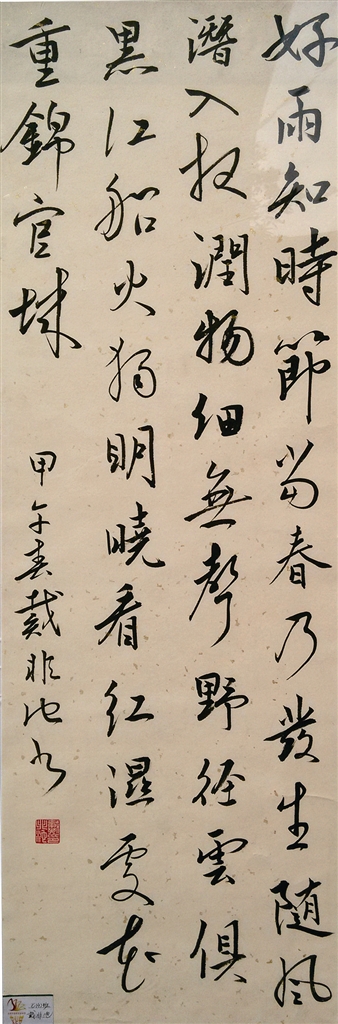 好雨知時節當春乃發生随風
潛入夜潤物細無聲野径雲俱
黑江船火獨明曉看紅濕處花
重錦官城
甲午春戴非池书